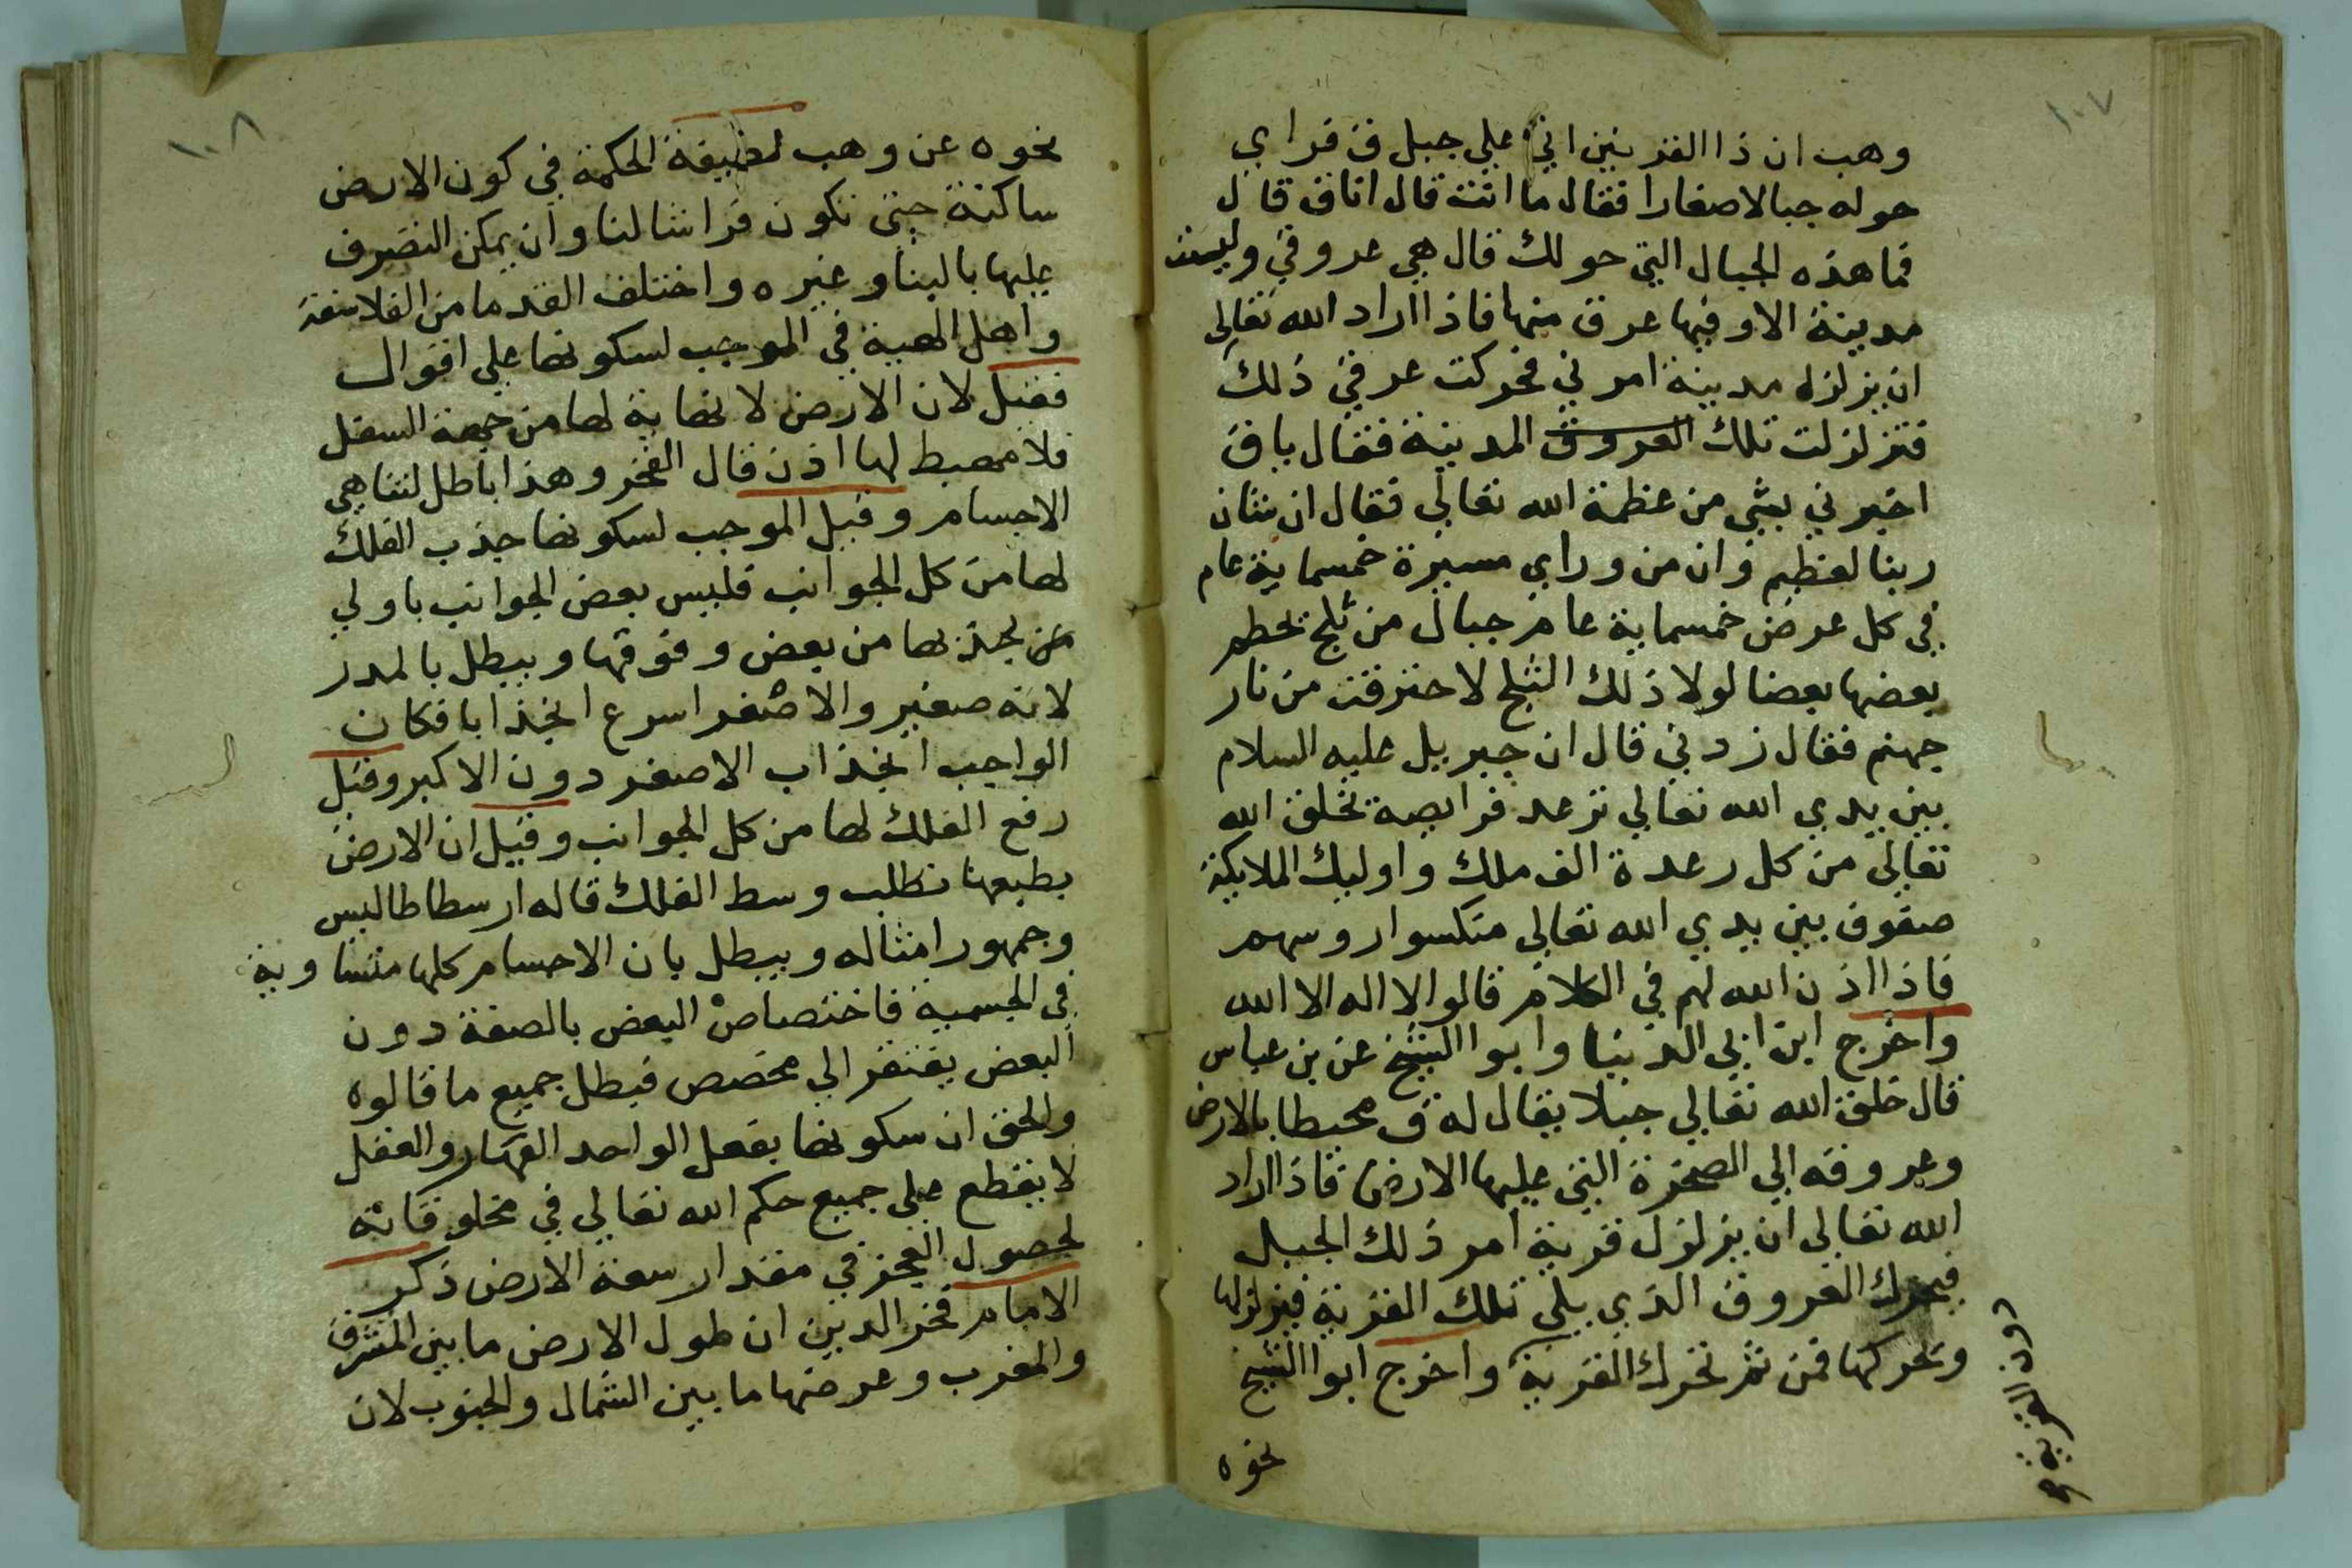 ١٠٧
وهب ان ذا القرنين اتي علي جبل ق فراي
حوله جبالا صغارا فقال ما انت قال انا ق قال
فما هذه الجبال التي حولك قال هي عروقي وليست
مدينة الا وفيها عرق منها فاذا اراد الله تعالي
ان يزلزل مدينة امرني فحركت عرقي ذلك
فتزلزلت تلك العروق المدينة فقال يا ق
اخبرني بشي من عظمة الله تعالي فقال ان شان
ربنا لعظيم وان من وراي مسيرة خمسماية عام
في كل عرض خمسماية عام جبال من ثلج يحطم
بعضها بعضا لولا ذلك الثلج لاحترقت من نار
جهنم فقال زدني قال ان جبريل عليه السلام
بين يدي الله تعالي ترعد فرايصه يخلق الله
تعالي من كل رعدة الف ملك واوليك الملايكة
صفوف بين يدي الله تعالي منكسوا روسهم
فاذا اذن الله لهم في الكلام قالوا لا اله الا الله
واخرج ابن ابي الدنيا وابوا الشيخ عن بن عباس
قال خلق الله تعالي جبلا يقال له ق محيطا بالارض
وعروقه الي الصخرة التي عليها الارض فاذا اراد
الله تعالي ان يزلزل قرية امر ذلك الجبل
فيحرك العروق الذي يلي تلك القرية فيزلزلها
ويحركها فمن ثم تحرك القرية واخرج ابوا الشيخ
دون القرية
نحوه
١٠٨
نحوه عن وهب لطيفة الحكمة في كون الارض
ساكنة حتي تكون فراشا لنا وان يمكن التصرف
عليها بالبنا وغيره واختلف القدما من الفلاسفة
واهل الهية في الموجب لسكونها علي اقوال
فقيل لان الارض لا نهاية لها من جهة السفل
فلا مهبط لها اذن قال الفخر وهذا باطل لتناهي
الاجسام وقيل الموجب لسكونها جذب الفلك
لها من كل الجوانب فليس بعض الجوانب باولي
من يجذبها من بعض وفوقها ويبطل بالمدر
لانه صغير والاصغر اسرع انجذابا فكان
الواجب انجذاب الاصغر دون الاكبر وقيل
رفع الفلك لها من كل الجوانب وقيل ان الارض
بطبعها تطلب وسط الفلك قاله ارسطاطاليس
وجمهور امثاله ويبطل بان الاجسام كلها متساوية
في الجسمية فاختصاص البعض بالصفة دون
البعض يفتقر الي مخصص فبطل جميع ما قالوه
والحق ان سكونها بفعل الواحد القهار والعقل
لا يقطع علي جميع حكم الله تعالي في مخلوقاته
لحصول العجز في مقدار سعة الارض ذكر
الامام فخر الدين ان طول الارض ما بين المشرق
والمغرب وعرضها ما بين الشمال والجنوب لان